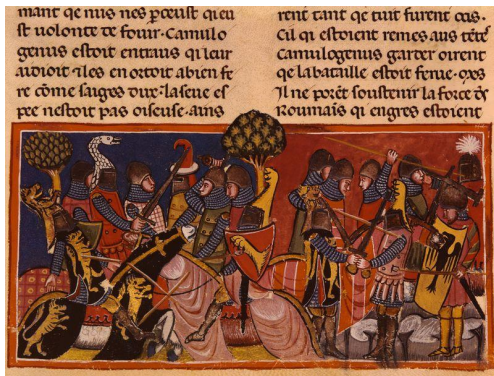 mant qe nus nes perceust qi eu
st uolonte de fouir. Camulo
genus estoit entraus qi leur
aidoit 7 les en ortoit a bien fe
re cōme saiges dux. la seue es
pee nestoit pas oiseuse. ains
rent tant qe tuit furent ocis.
Cil qi estoient remes aus tētes
Camulogenus garder oirent
qe la bataille estoit ferue. mes
Il ne porēt soustenir la force des
Roumais qi engres estoient